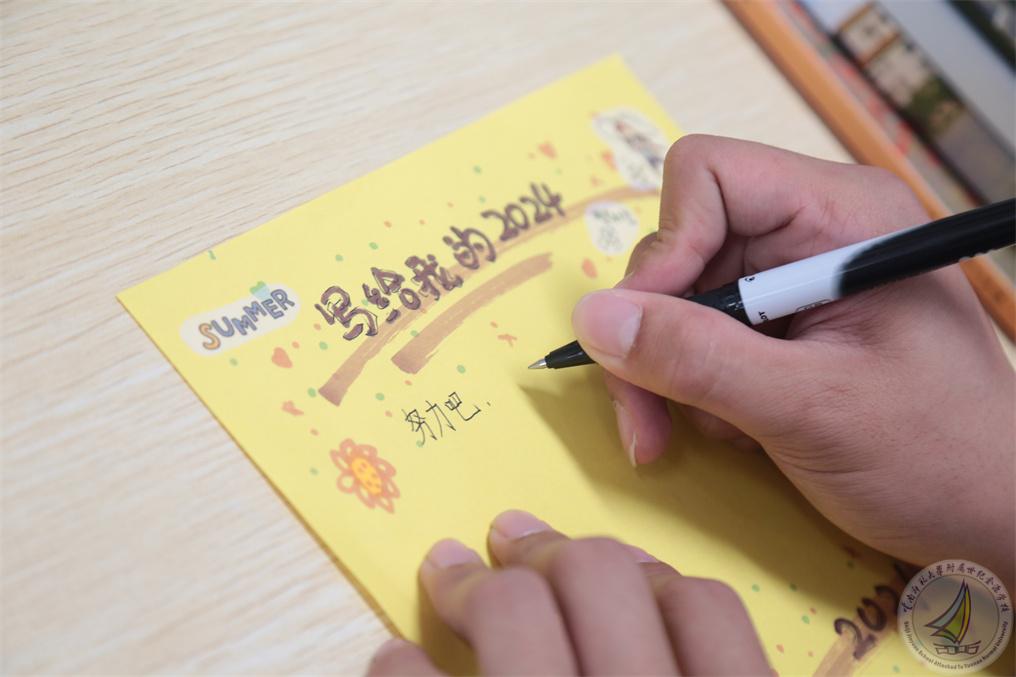 写给我的2024
SUMMER
努力吧.
202
云南师范大学附属世纪金源学校